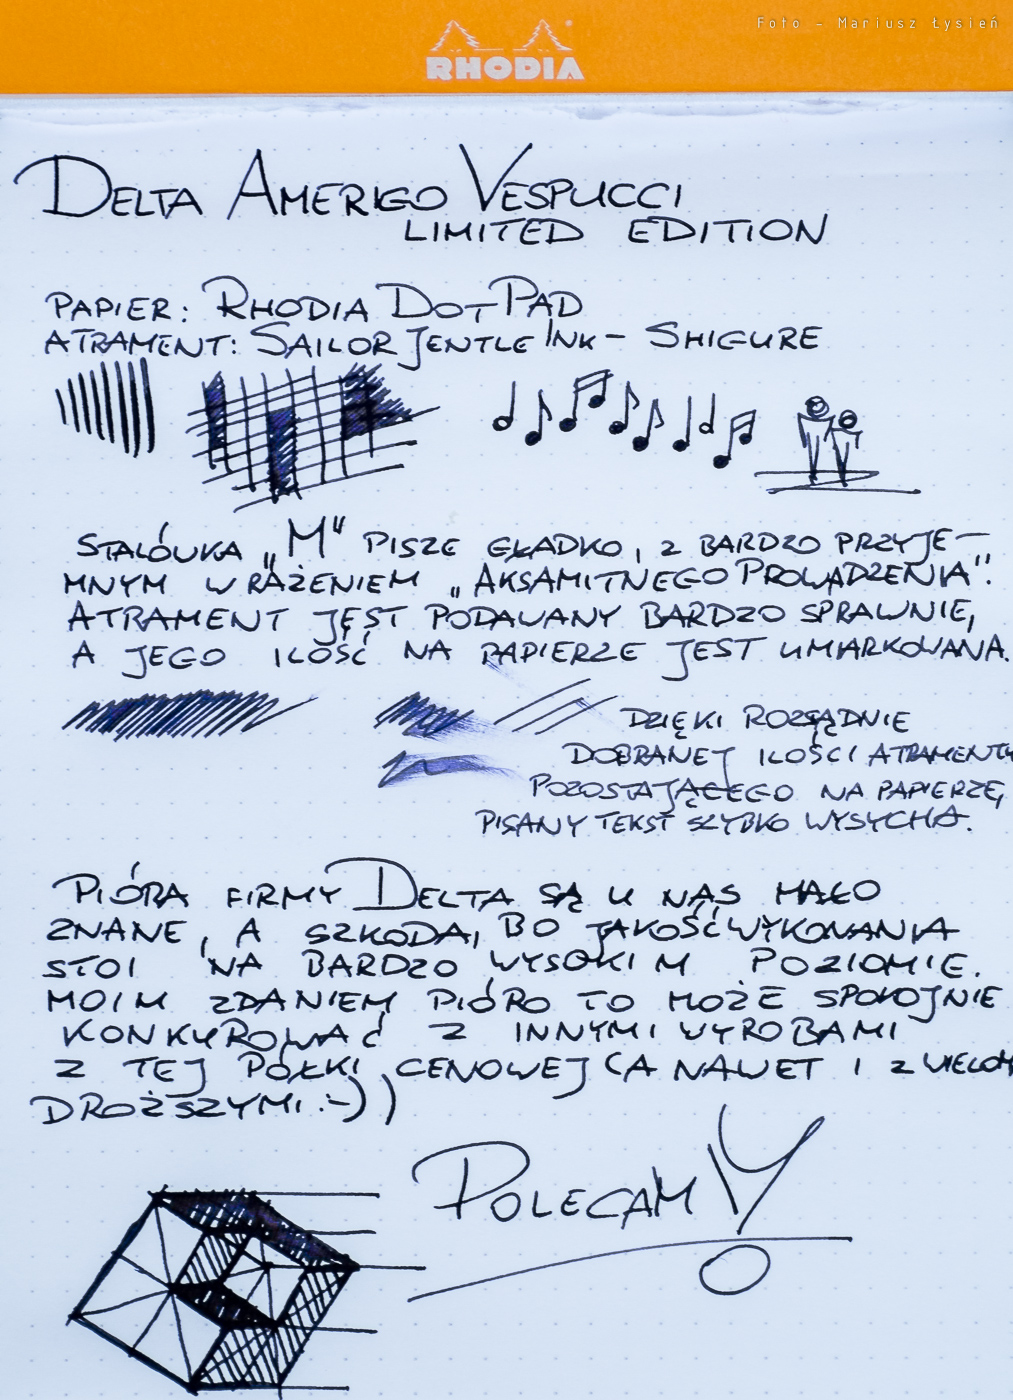 Foto - Mariusz Łysień
RHODIA
DELTA AMERIGO VESPUCCI
LIMITED EDITION
PAPIER: RHODIA DOTPAD
ATRAMENT: SAILOR JENTLE INK - SHIGURE
STALÓWKA „M" PISZE GŁADKO, Z BARDZO PRZYJE-
MNYM WRAŻENIEM „AKSAMITNEGO PROWADZENIA".
ATRAMENT JEST PODAWANY BARDZO SPRAWNIE,
A JEGO ILOŚĆ NA PAPIERZE JEST UMIARKOWANA.
DZIĘKI ROZSĄDNIE
DOBRANEJ ILOŚCI ATRAMENTU
POZOSTAJĄCEGO NA PAPIERZE,
PISANY TEKST SZYBKO WYSYCHA.
PIÓRA FIRMY DELTA SĄ U NAS MAŁO
ZNANE, A SZKODA, BO JAKOŚĆ WYKONANIA
STOI NA BARDZO WYSOKIM POZIOMIE.
MOIM ZDANIEM PIÓRO TO MOŻE SPOKOJNIE
KONKUROWAĆ Z INNYMI WYROBAMI
Z TEJ PÓŁKI CENOWEJ (A NAWET I Z WIELOM
DROŻSZYMI :-) )
POLECAM!